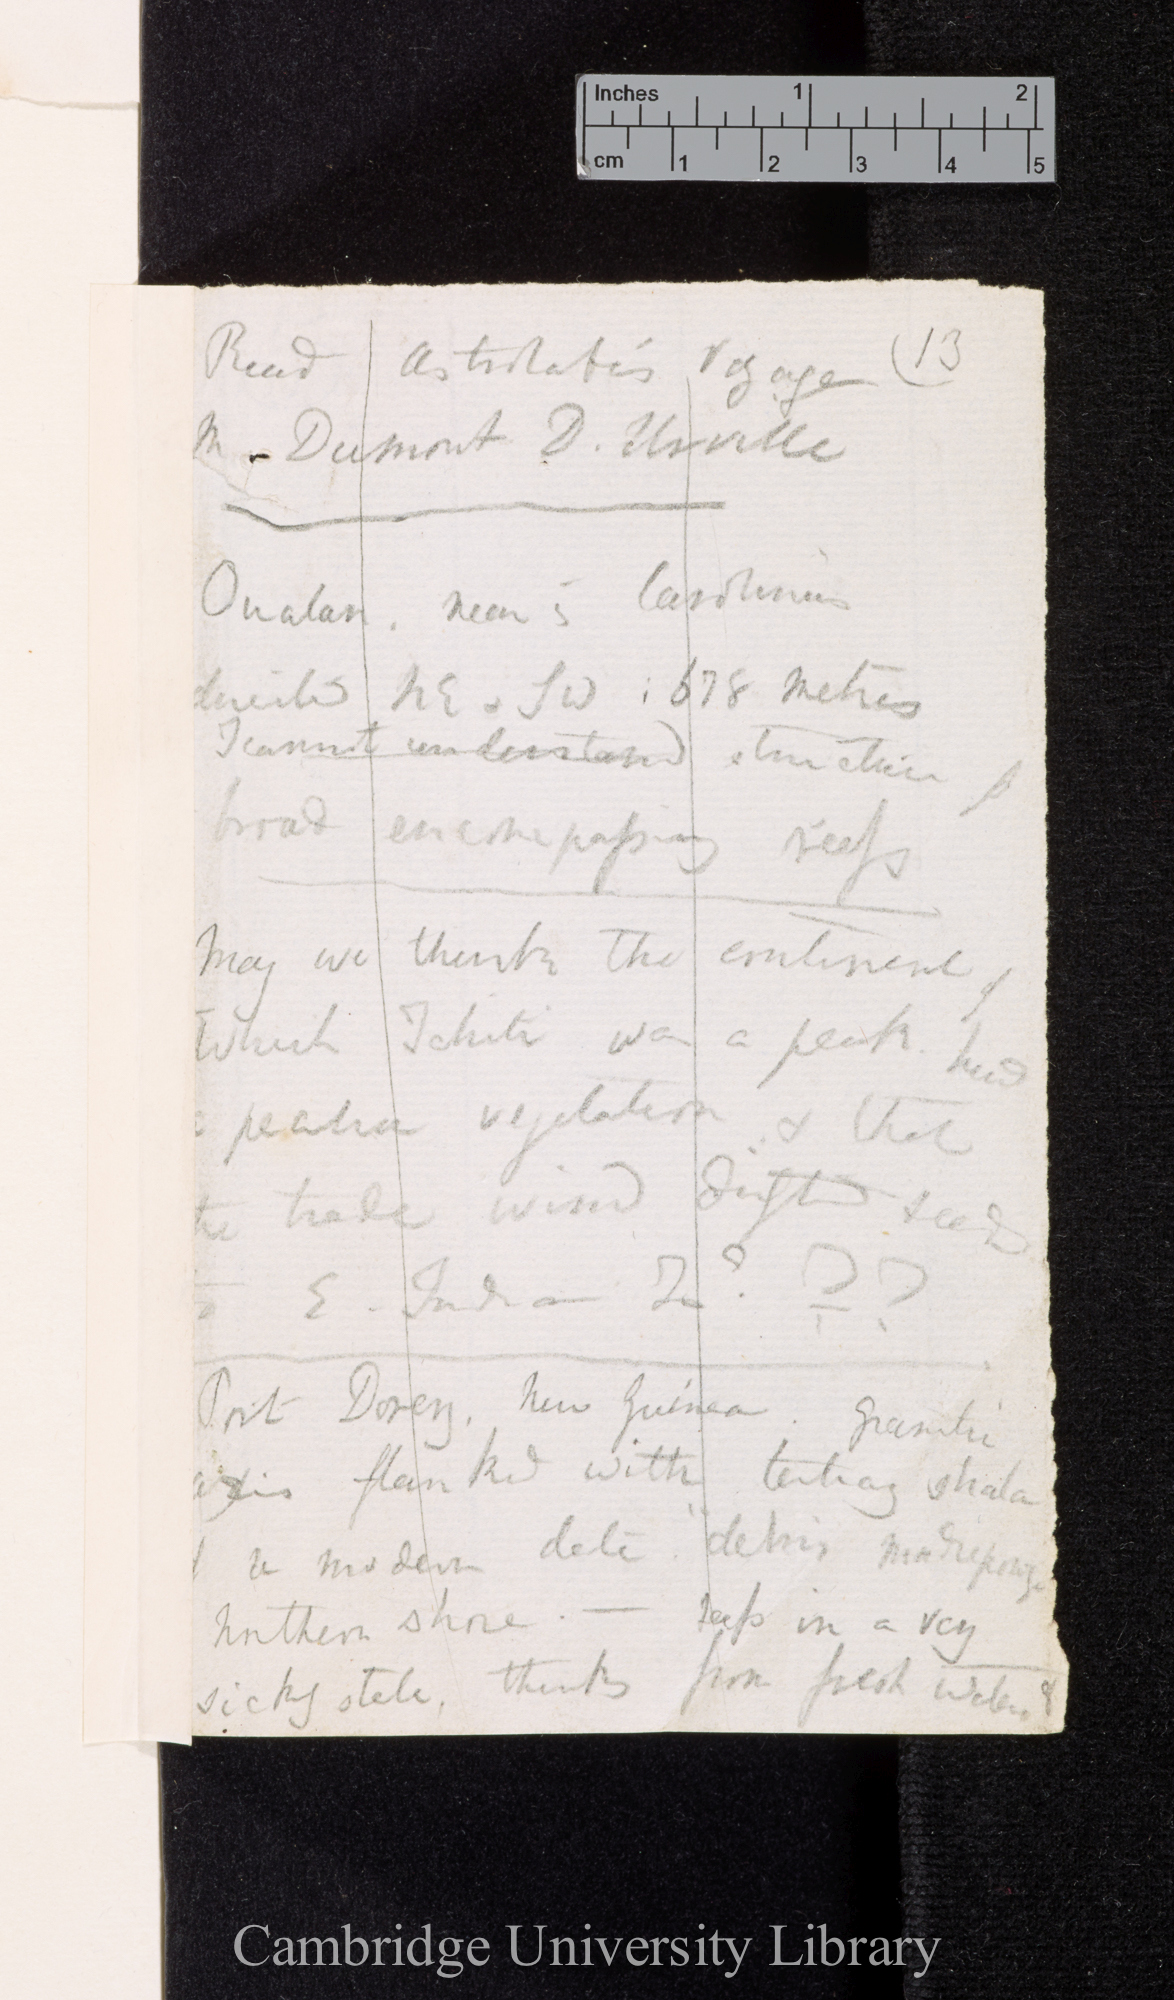 Inches 1 2
cm 1 2 3 4 5
13
Read Astrolabe's Voyage
M. Dumont D. Urville
Oualan, near Carolinas
NE & SW : 678 metres
I cannot understand structure of
broad encompassing reefs
May we think the continent of
which Tahiti was a peak had
a peculiar vegetation, & that
the trade wind drifted seeds
to E. Indian Is? ??
Port Dorey, New Guinea. Granitic
axis flanked with tertiary strata
modern date "debris madreporiq
Northern shore. — reefs in a very
sickly state, thinks from fresh water &
Cambridge University Library